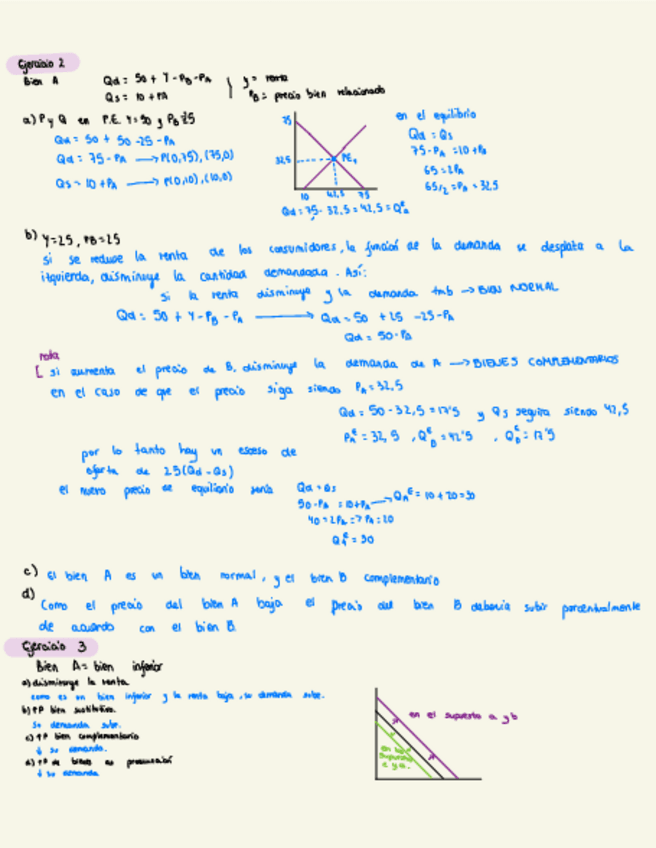 Ejercicio 2
Bien A
Qd = 50 + Y - PB - PA
Qs = 10 + PA
Y = renta
PB = precio bien relacionado
a) P y Q en P.E. Y=50 y PB=25
Qd = 50 + 50 - 25 - PA
Qd = 75 - PA → P(0,75), (75,0)
Qs = 10 + PA → P(0,10), (10,0)
75
32,5
PE₁
10 42,5 75
Qd = 75 - 32,5 = 42,5 = Q
en el equilibrio
Qd = Qs
75 - PA = 10 + PA
65 = 2PA
65/2 = PA = 32,5
b) Y=25, PB=25
si se reduce la renta de los consumidores, la función de la demanda se desplaza a la
izquierda, disminuye la cantidad demandada. Así:
si la renta disminuye y la demanda tmb → BIEN NORMAL
Qd = 50 + Y - PB - PA → Qd = 50 + 25 - 25 - PA
Qd = 50 - PA
nota
[ si aumenta el precio de B, disminuye la demanda de A → BIENES COMPLEMENTARIOS
en el caso de que el precio siga siendo PA = 32,5
Qd = 50 - 32,5 = 17'5 y Qs seguira siendo 42,5
= 32,5 , = 42'5 , = 17'5
por lo tanto hay un exceso de
oferta de 25 (Qd - Qs)
el nuevo precio de equilibrio seria
Qd = Qs
50 - PA = 10 + PA → QAᴱ = 10 + 20 = 30
40 = 2PA => PA = 20
QAᴱ = 30
c) el bien A es un bien normal, y el bien B complementario
d)
Como el precio del bien A baja el precio del bien B deberia subir porcentralmente
de acuerdo con el bien B.
Ejercicio 3
Bien A = bien inferior
a) disminuye la renta
como es un bien inferior y la renta baja, su demanda sube.
b) ↑P bien sustitutivo.
su demanda sube.
c) ↑P bien complementario
↓ su demanda.
d) ↑P de bienes de producción
↓ su demanda
en el supuesto a y b
en los
supuestos
c y d.